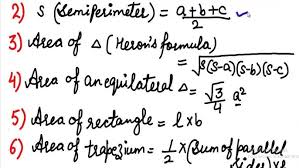 2) S (Semiperimeter) = a+b+c/2
3) Area of △ (Heron's formula)
= √s(s-a)(s-b)(s-c)
4) Area of an equilateral △ =
√3/4 a²
5) Area of rectangle = l × b
6) Area of trapezium = 1/2 × (Sum of parallel
sides) ×